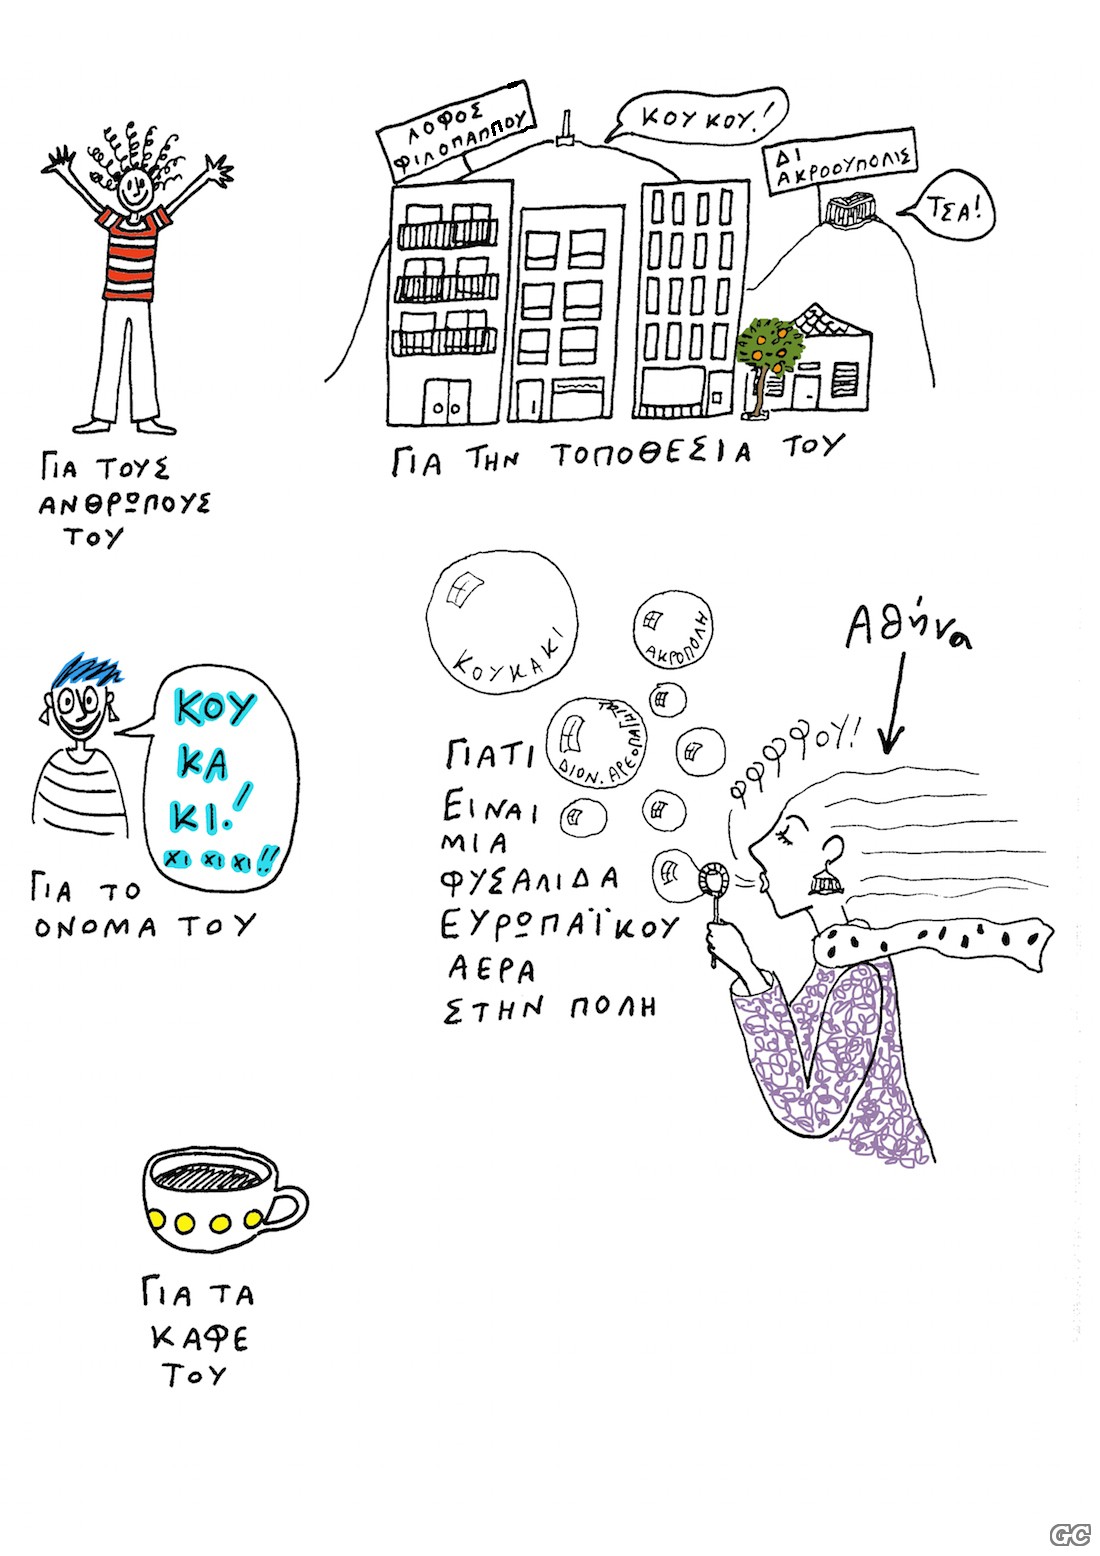 ΛΟΦΟΣ
ΦΙΛΟΠΑΠΠΟΥ
ΚΟΥΚΟΥ!
ΔΙ
ΑΚΡΟΟΥΠΟΛΙΣ
ΤΣΑ!
ΓΙΑ ΤΟΥΣ
ΑΝΘΡΩΠΟΥΣ
ΤΟΥ
ΓΙΑ ΤΗΝ ΤΟΠΟΘΕΣΙΑ ΤΟΥ
ΚΟΥ
ΚΑ
ΚΙ!
ΧΙ ΧΙ ΧΙ!!
ΓΙΑ ΤΟ
ΟΝΟΜΑ ΤΟΥ
ΚΟΥΚΑΚΙ
ΑΚΡΟΠΟΛΗ
ΔΙΟΝ. ΑΡΕΟΠΑΓΙΤΗ
Αθήνα
ΦΦΦΦΟΥ!
ΓΙΑΤΙ
ΕΙΝΑΙ
ΜΙΑ
ΦΥΣΑΛΙΔΑ
ΕΥΡΩΠΑΪΚΟΥ
ΑΕΡΑ
ΣΤΗΝ ΠΟΛΗ
ΓΙΑ ΤΑ
ΚΑΦΕ
ΤΟΥ
GC